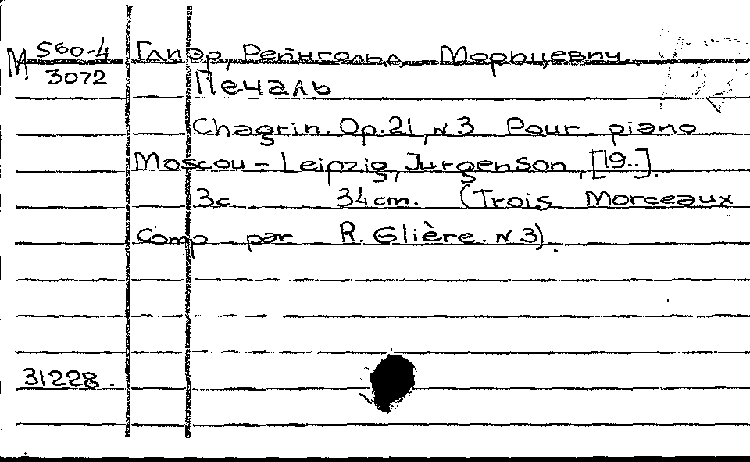 М 560-4 Глиэр, Рейнгольд Морицевич
3072 Печаль
Chagrin. Op. 21, N 3 Pour piano
Moscou - Leipzig, Jurgenson, [19..].
3с 34cm. (Trois Morceaux
Comp par R. Glière. N 3).
31228.